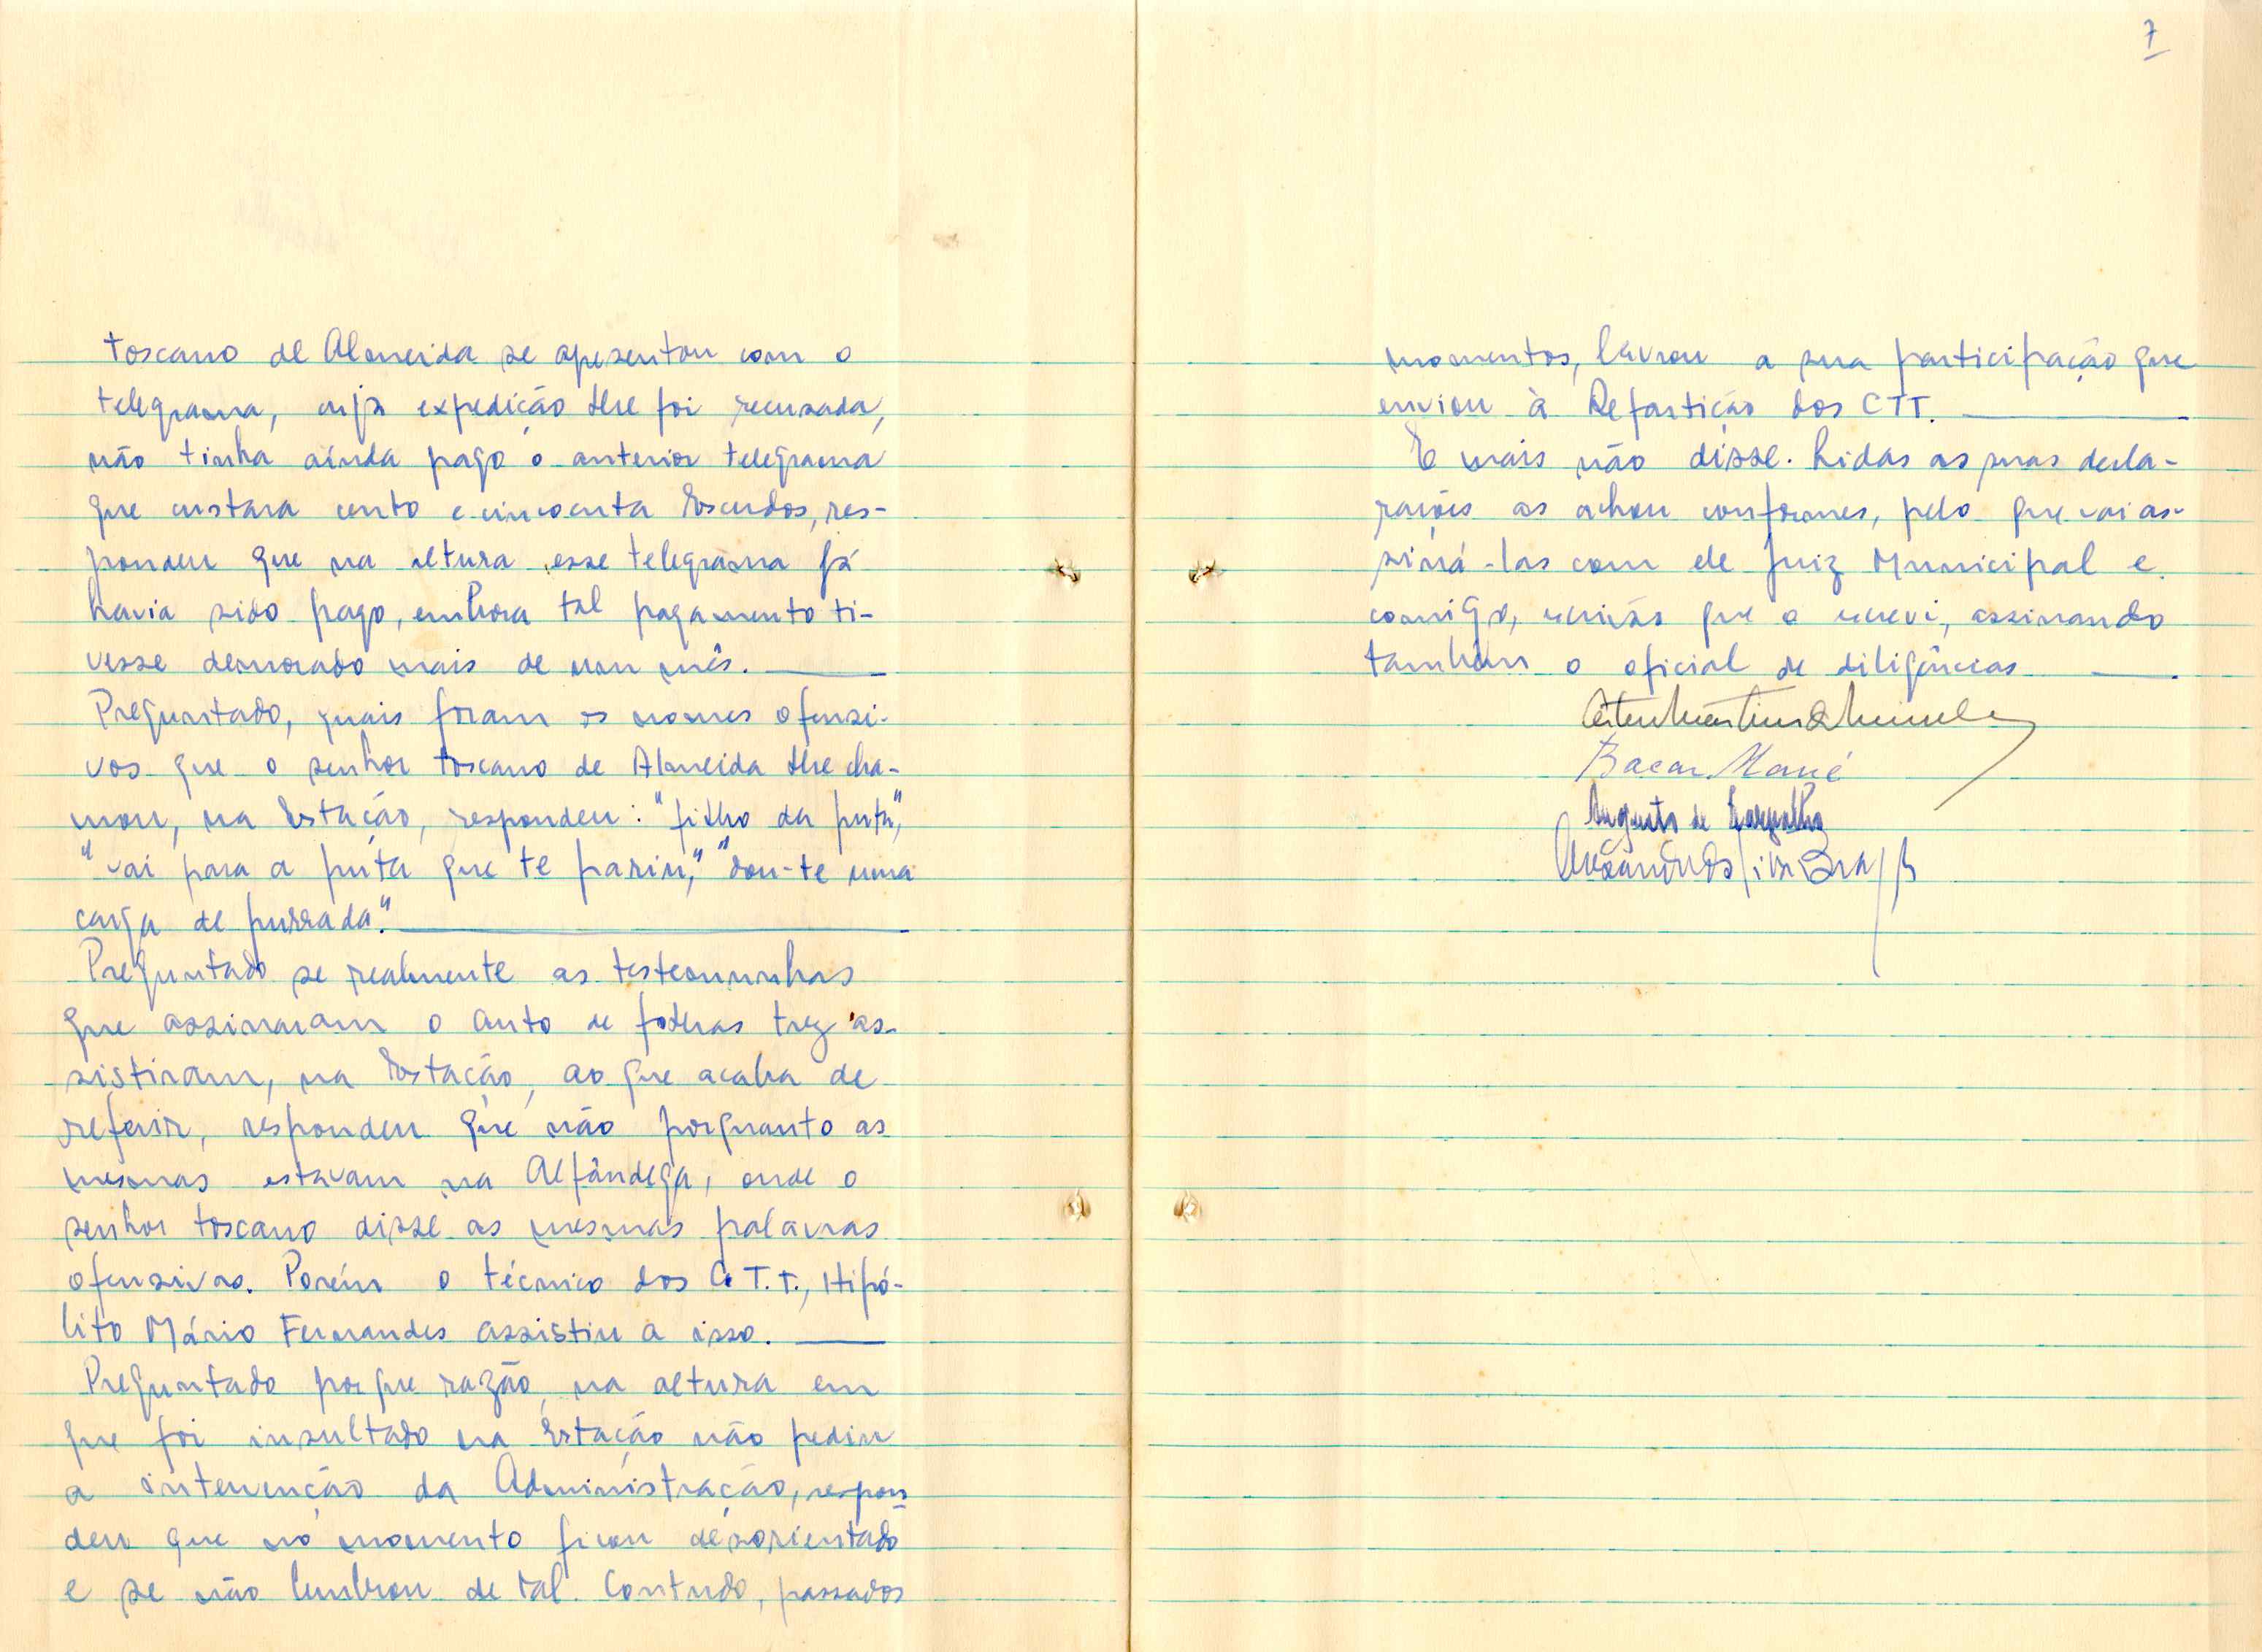 Toscano de Almeida se apesentou com o
telegrama, cuja expedição lhe foi recusada,
não tinha ainda pago o anterior telegrama
que custara cento e cincoenta Escudos, res-
pondeu que na altura esse telegrama já
havia sido pago, embora tal pagamento ti-
vesse demorado mais de um mês.
Preguntado, quais foram os nomes ofensi-
vos que o senhor Toscano de Almeida lhe cha-
mou, na Estação, respondeu: "filho da puta",
"vai para a puta que te pariu," "dou-te uma
carga de purrada."
Preguntado se realmente as testemunhas
que assinaram o auto de folhas trez as-
sistiram, na Estação, ao que acaba de
referir, respondeu que não porquanto as
mesmas estavam na Alfândega, onde o
senhor Toscano disse as mesmas palavras
ofensivas. Porém o técnico dos C.T.T., Hipó-
lito Mário Fernandes assistiu a isso.
Preguntado porque razão, na altura em
que foi insultado na Estação não pediu
a intervenção da Administração, respon
deu que no momento ficou desorientado
e se não lembrou de tal. Contudo, passados
7
momentos, lavrou a sua participação que
enviou à Repartição dos CTT.
E mais não disse. Lidas as suas decla-
rações as achou conformes, pelo que vai as-
siná-las com ele Juiz Municipal e
comigo, escrivão que o escrevi, assinando
tambem o oficial de diligências
Bacar Mané
Augusto de Carvalho